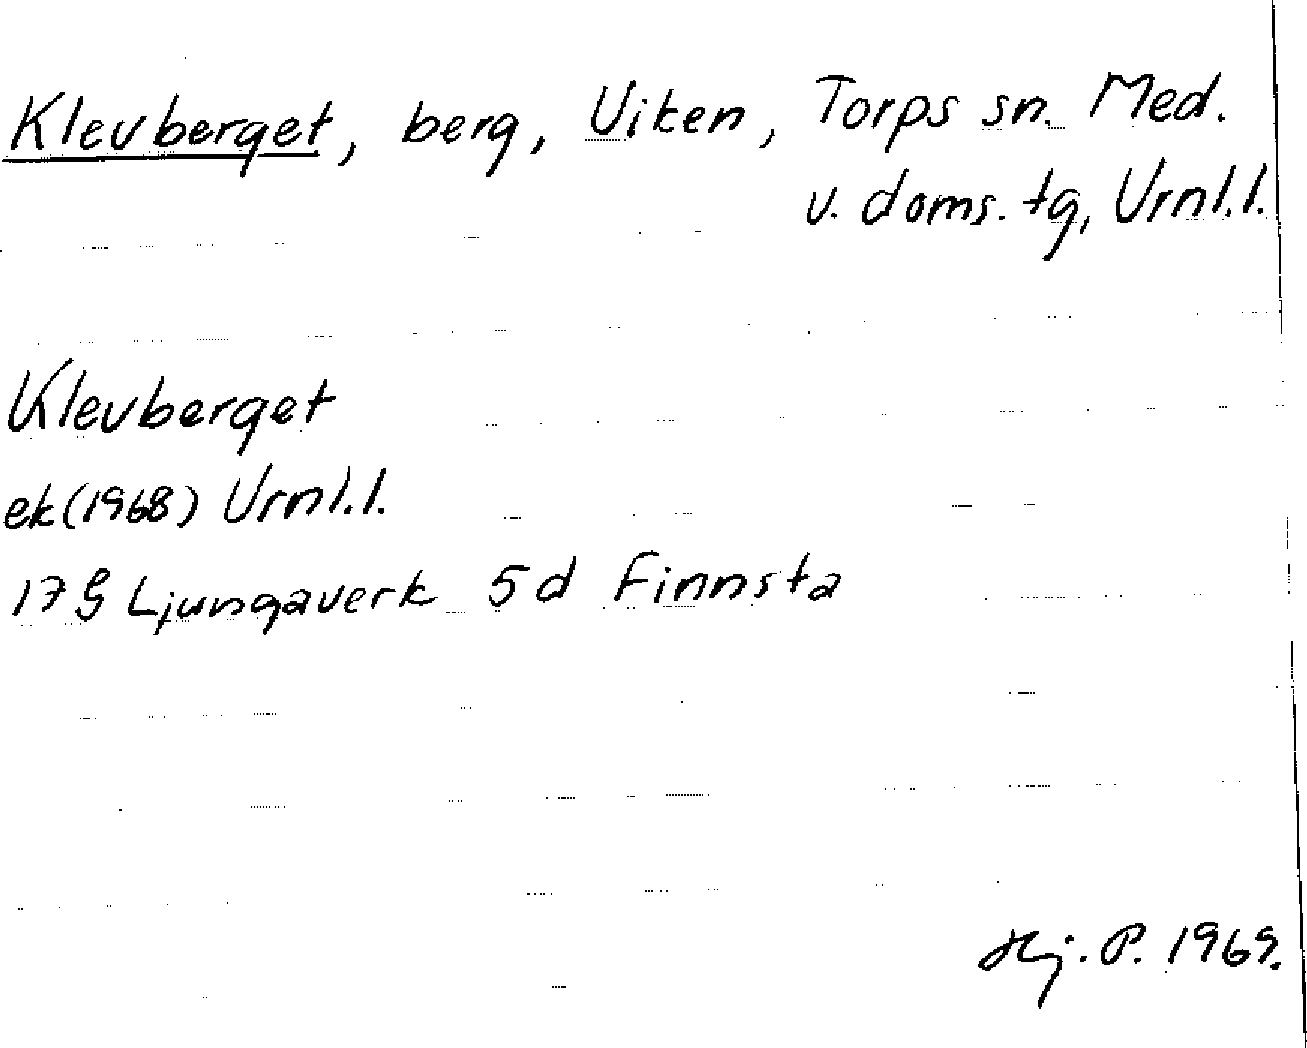 Klevberget, berg, Viken, Torps sn. Med.
v. doms. tg, Vrnl.l.
Klevberget
ek(1968) Vrnl.l.
17G Ljungaverk 5d Finnsta
Hj. P. 1969.